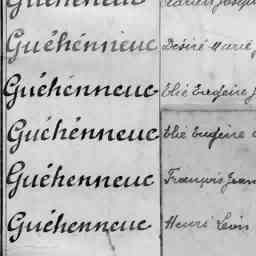 Guéhénneuc
Guéhénneuc Désiré Marie
Guéhénneuc Elie Eugène J
Guéhénneuc Elie Eugène
Guéhenneuc François Jean
Guéhenneuc Henri Léon